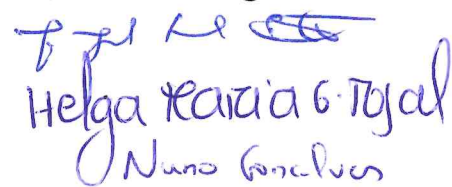 Helga Maria G. Tojal
Nuno Gonçalves